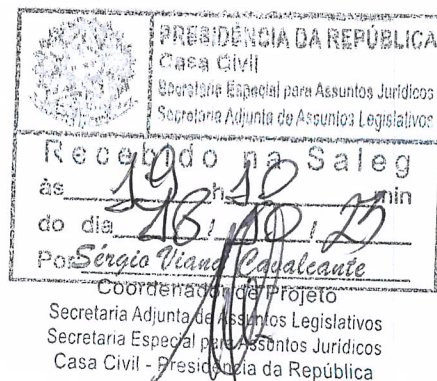 PRESIDÊNCIA DA REPÚBLICA
Casa Civil
Secretaria Especial para Assuntos Jurídicos
Secretaria Adjunta de Assuntos Legislativos
Recebido na Saleg
às 19 h 10 min
do dia 16 / 10 / 23
Por Sérgio Viana Cavalcante
Coordenador de Projeto
Secretaria Adjunta de Assuntos Legislativos
Secretaria Especial para Assuntos Jurídicos
Casa Civil - Presidência da República